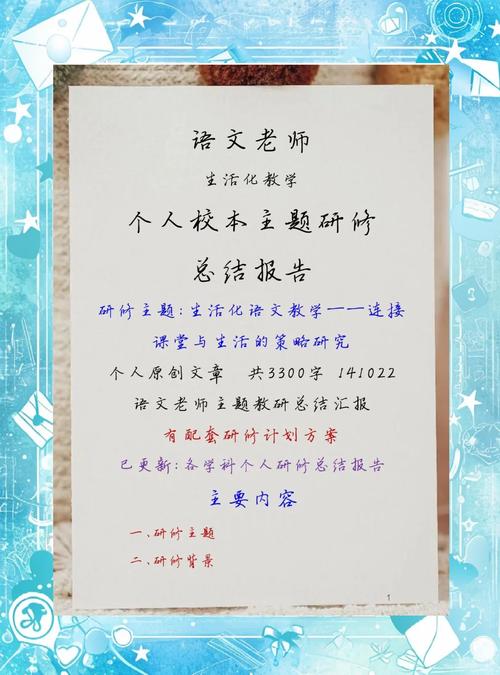 语文老师
生活化教学
个人校本主题研修
总结报告
研修主题:生活化语文教学——连接
课堂与生活的策略研究
个人原创文章 共3300字 141022
语文老师主题教研总结汇报
有配套研修计划方案
已更新:各学科个人研修总结报告
主要内容
一、研修主题
二、研修背景
1